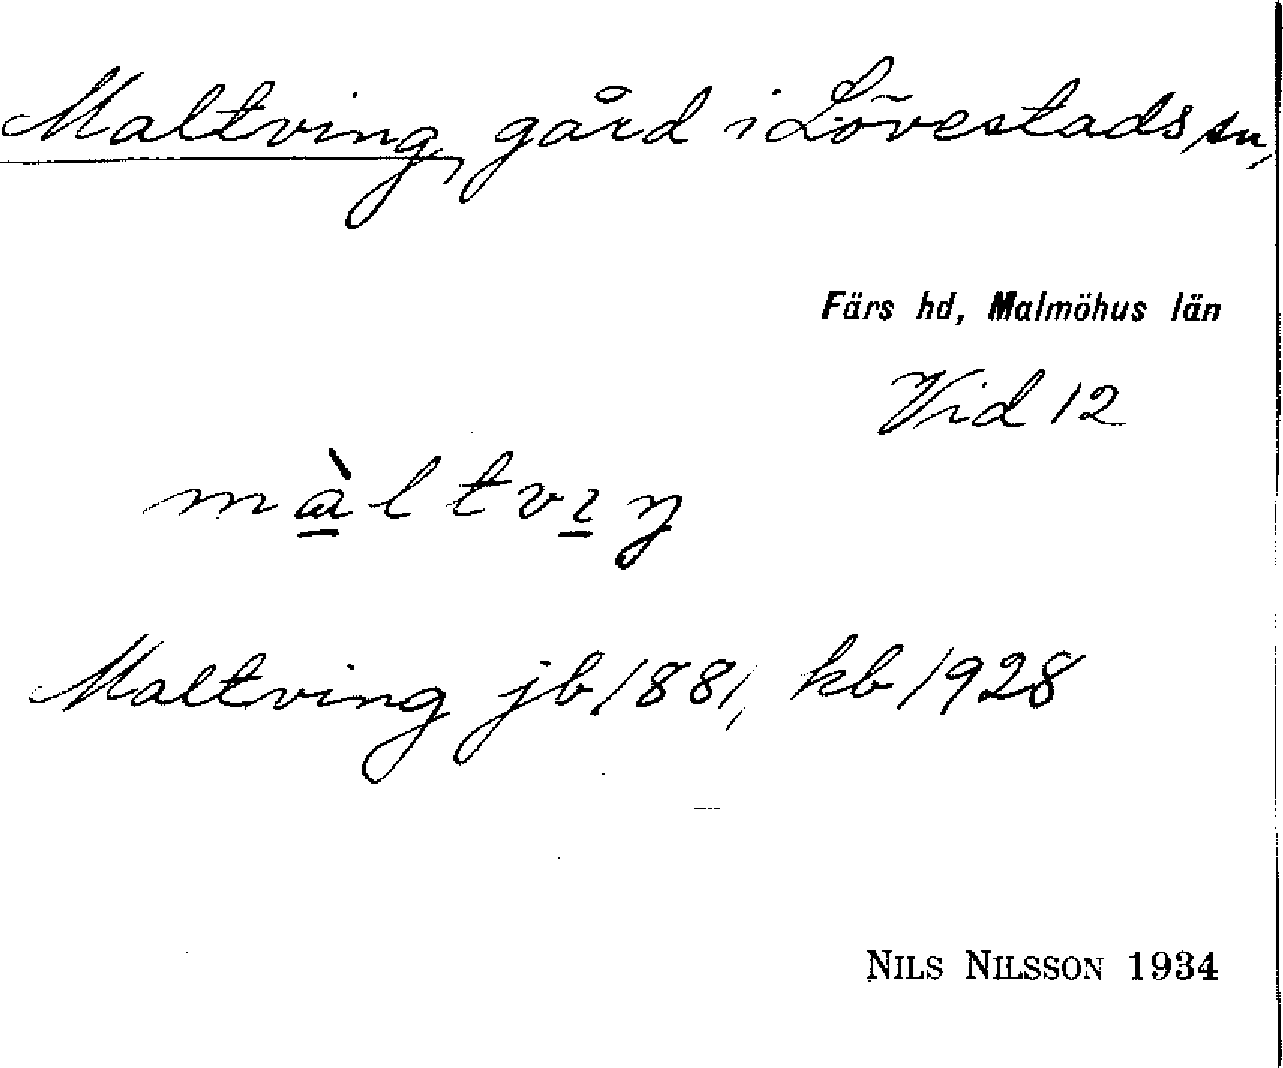 Maltving, gård i Lövestads sn,
Färs hd, Malmöhus län
Vid 12
màltvıŋ
Maltving jb 1881, kb 1928
NILS NILSSON 1934